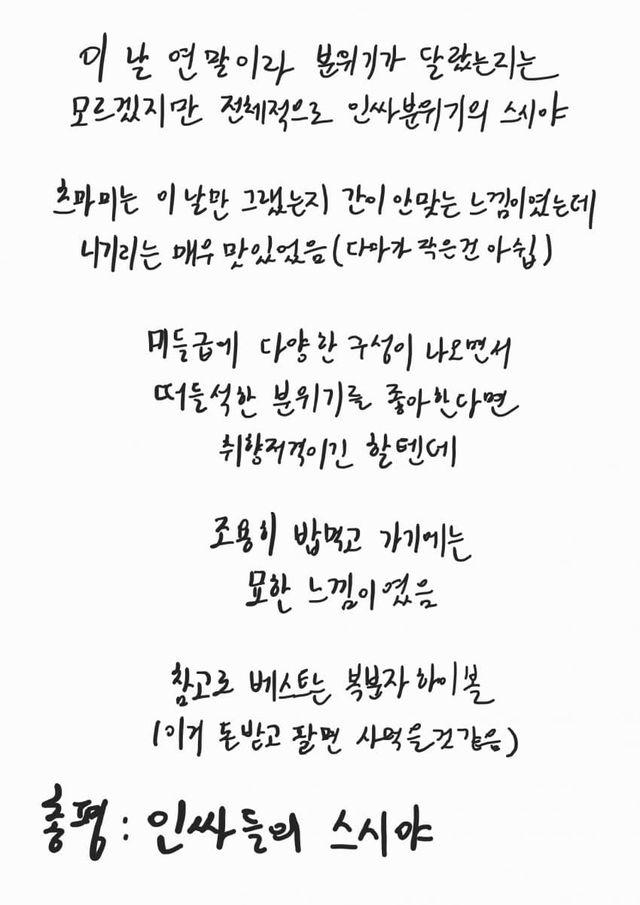 이 날 연말이라 분위기가 달랐는지는
모르겠지만 전체적으로 인싸분위기의 스시야
츠마미는 이 날만 그랬는지 간이 안맞는 느낌이였는데
니기리는 매우 맛있었음 (다마가 작은건 아쉽)
미들급에 다양한 구성이 나오면서
떠들석한 분위기를 좋아한다면
취향저격이긴 할텐데
조용히 밥먹고 가기에는
묘한 느낌이였음
참고로 베스트는 복분자 하이볼
(이거 돈받고 팔면 사먹을것같음)
총평 : 인싸들의 스시야